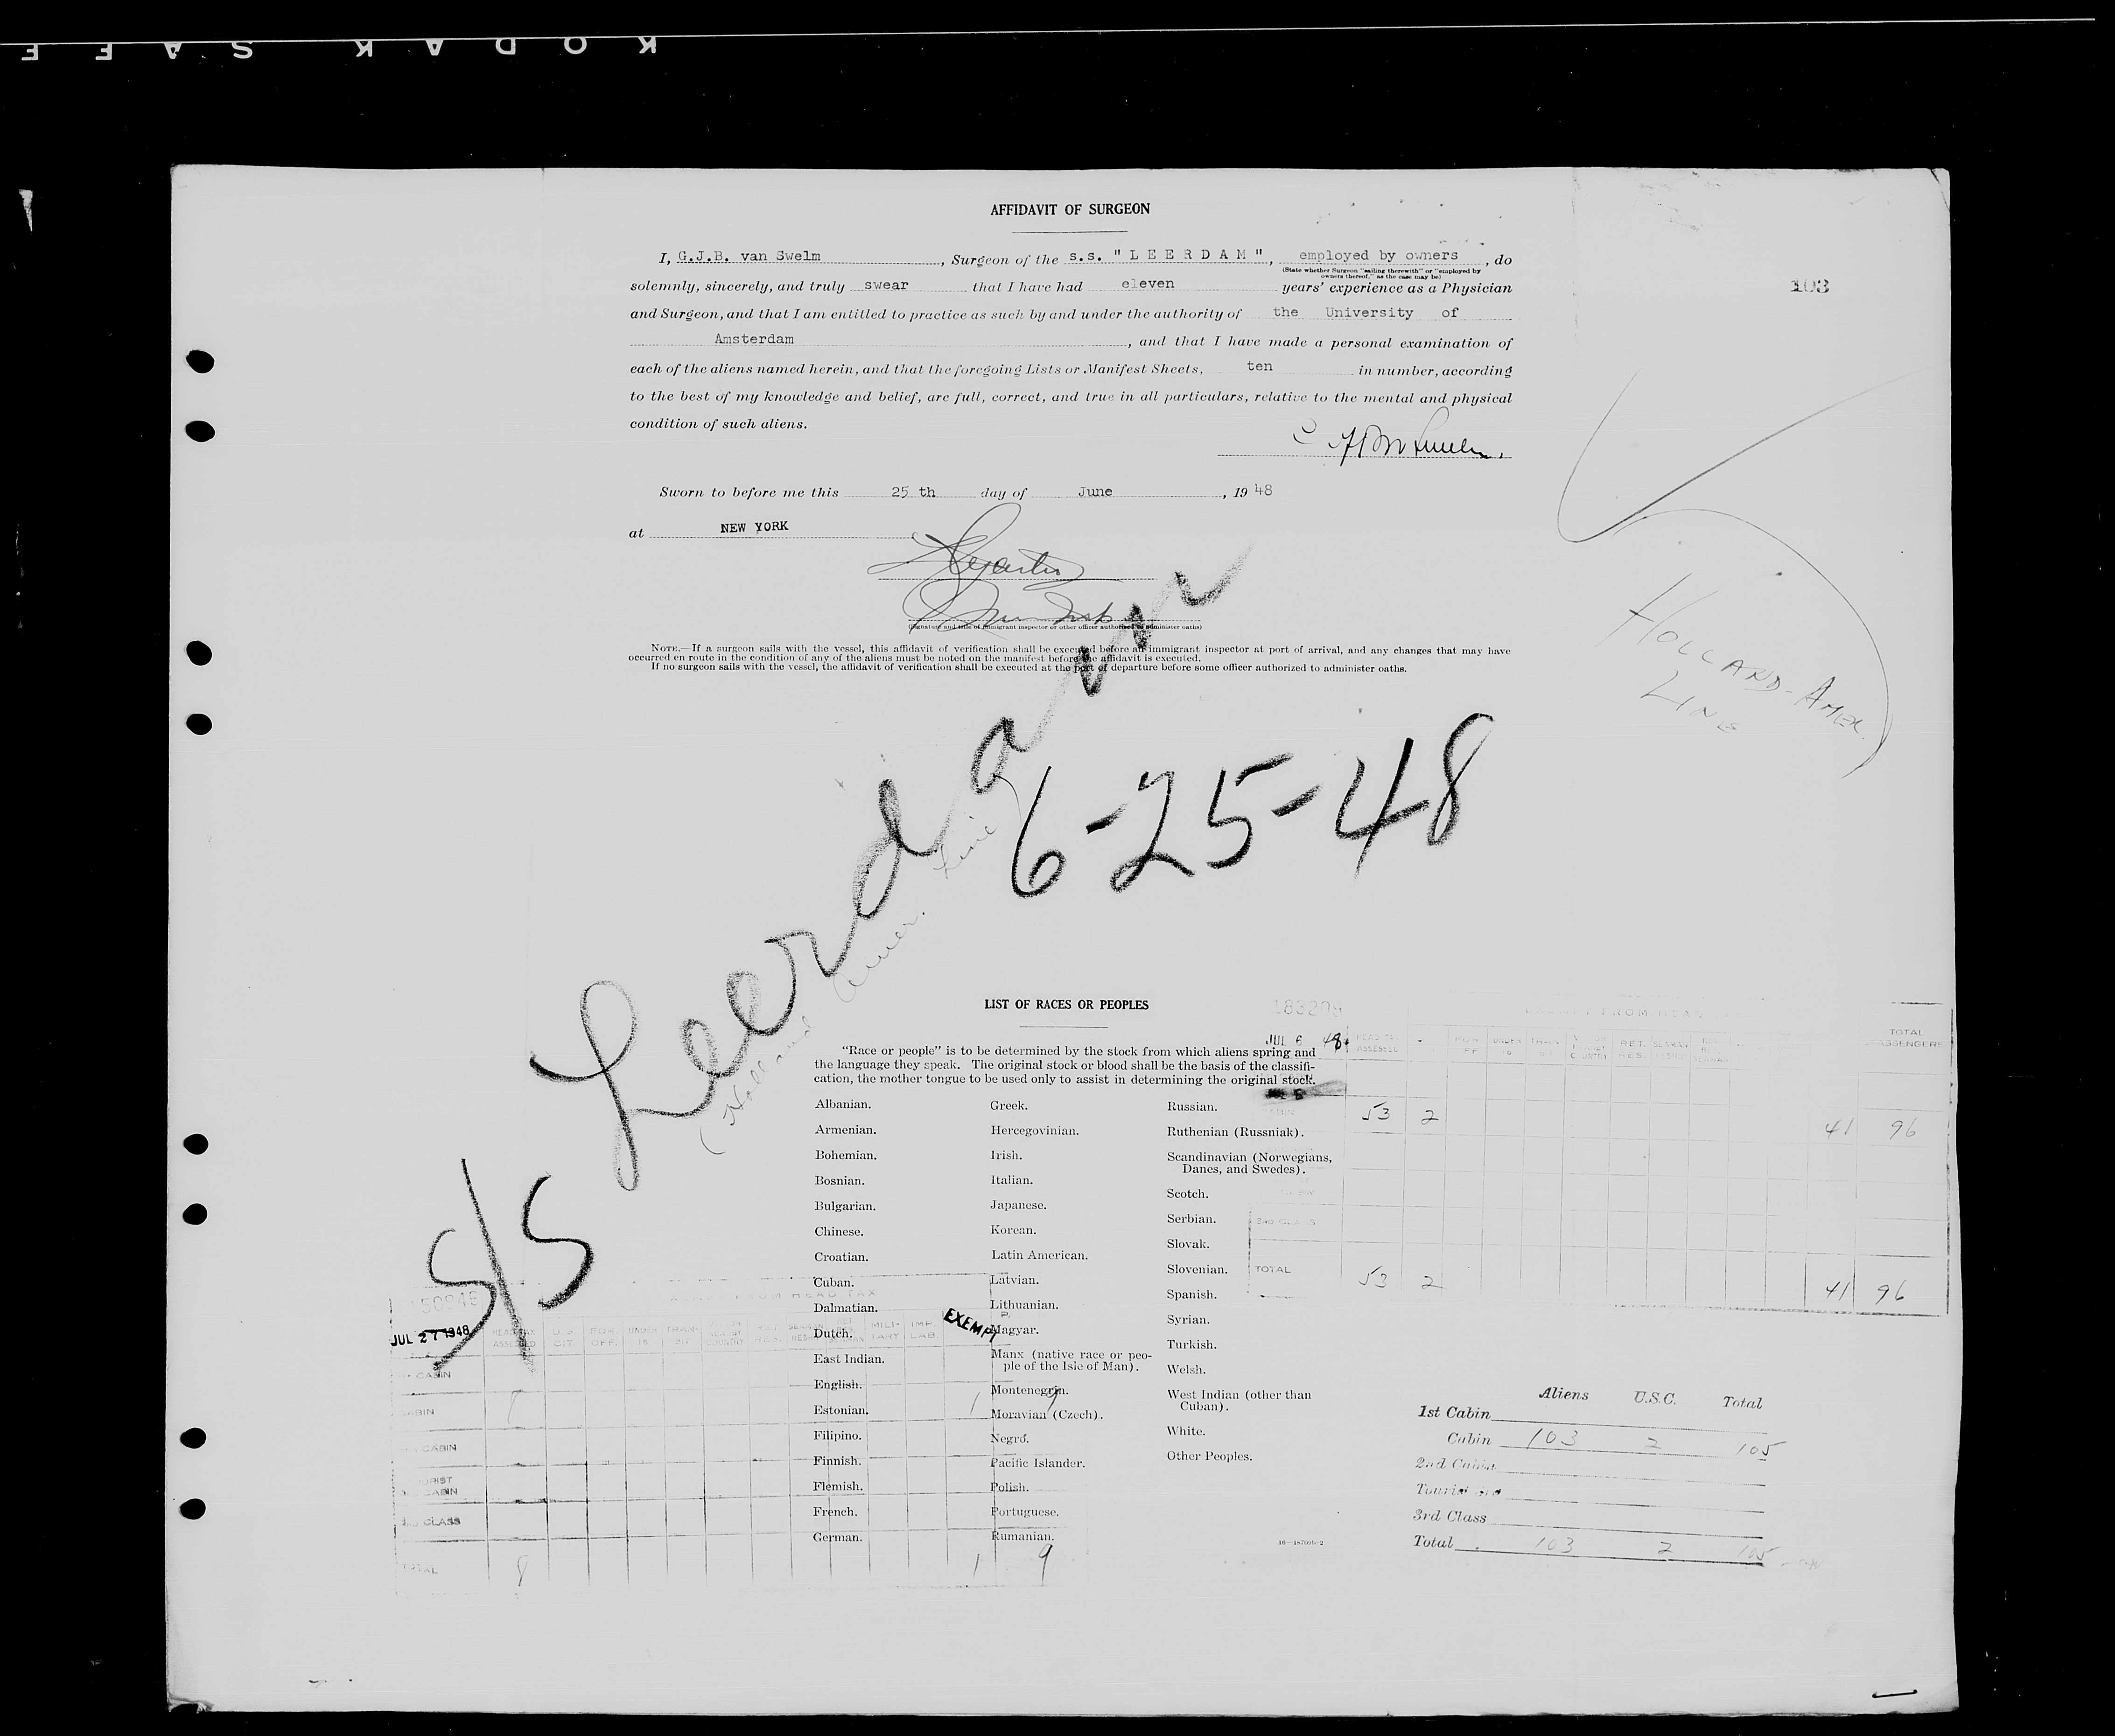 KODAK SAFE
AFFIDAVIT OF SURGEON
I, G.J.B. van Swelm, Surgeon of the s.s. "LEERDAM", employed by owners, do
(State whether Surgeon "sailing therewith" or "employed by
owners thereof," as the case may be)
103
solemnly, sincerely, and truly swear that I have had eleven years' experience as a Physician
and Surgeon, and that I am entitled to practice as such by and under the authority of the University of
Amsterdam, and that I have made a personal examination of
each of the aliens named herein, and that the foregoing Lists or Manifest Sheets, ten in number, according
to the best of my knowledge and belief, are full, correct, and true in all particulars, relative to the mental and physical
condition of such aliens.
Sworn to before me this 25 th day of June, 19 48
at NEW YORK
(Signature and title of immigrant inspector or other officer authorized to administer oaths)
NOTE.—If a surgeon sails with the vessel, this affidavit of verification shall be executed before an immigrant inspector at port of arrival, and any changes that may have
occurred en route in the condition of any of the aliens must be noted on the manifest before the affidavit is executed.
If no surgeon sails with the vessel, the affidavit of verification shall be executed at the port of departure before some officer authorized to administer oaths.
HOLLAND-AMER.
LINE
S/S Leerdam
6-25-48
(Holland Amer. Line)
LIST OF RACES OR PEOPLES
"Race or people" is to be determined by the stock from which aliens spring and
the language they speak. The original stock or blood shall be the basis of the classifi-
cation, the mother tongue to be used only to assist in determining the original stock.
Albanian.
Armenian.
Bohemian.
Bosnian.
Bulgarian.
Chinese.
Croatian.
Cuban.
Dalmatian.
Dutch.
East Indian.
English.
Estonian.
Filipino.
Finnish.
Flemish.
French.
German.
Greek.
Hercegovinian.
Irish.
Italian.
Japanese.
Korean.
Latin American.
Latvian.
Lithuanian.
Magyar.
Manx (native race or peo-
ple of the Isle of Man).
Montenegrin.
Moravian (Czech).
Negro.
Pacific Islander.
Polish.
Portuguese.
Rumanian.
Russian.
Ruthenian (Russniak).
Scandinavian (Norwegians,
Danes, and Swedes).
Scotch.
Serbian.
Slovak.
Slovenian.
Spanish.
Syrian.
Turkish.
Welsh.
West Indian (other than
Cuban).
White.
Other Peoples.
JUL 6 48
TOTAL
PASSENGERS
53 2 41 96
2nd CLASS
TOTAL 53 2 41 96
FROM HEAD TAX
JUL 27 1948
EXEMPT
CABIN
8 1 9
CABIN
CLASS
TOTAL 8 1 9
Aliens U.S.C. Total
1st Cabin
Cabin 103 2 105
2nd Cabin
Tourist 3rd
3rd Class
Total 103 2 105